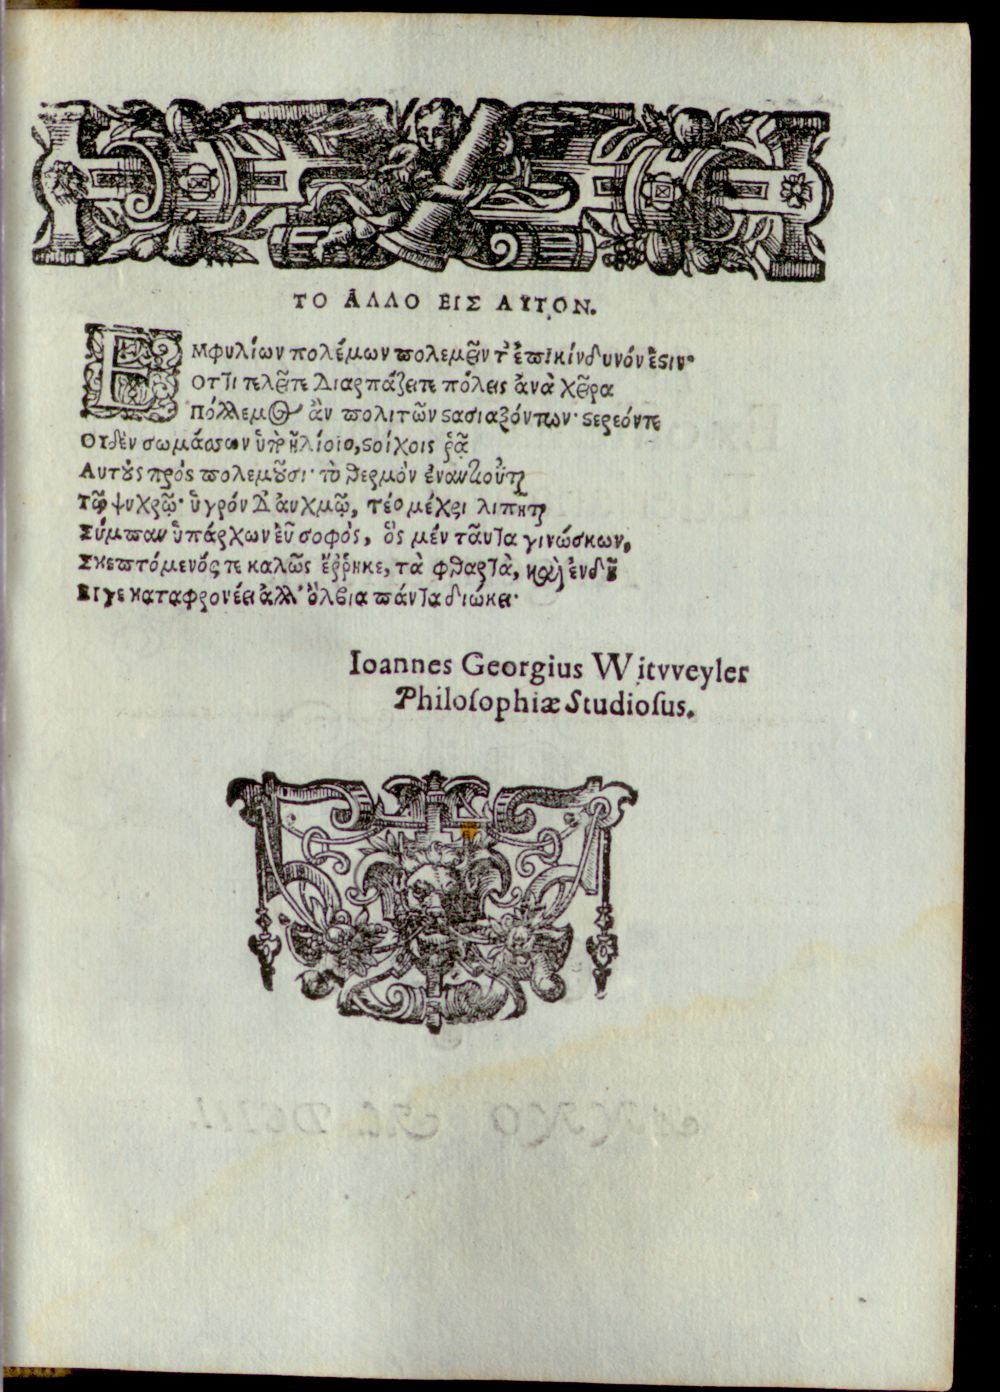 ΤΟ ΑΛΛΟ ΕΙΣ ΑΥΤΟΝ.
ΕΜφυλίων πολέμων πολεμεῖν τ' ἐπικίνδυνόν ἐστιν·
Οτ]ι τελεῖτε Διαρπάζειτε πόλεις ἀνὰ χεῖρα
Πόλλεμος ἂν πολιτῶν στασιαζόντων· στερεόντε
Ουδὲν σωμάτων ὑπ' ἠλίοιο, στοίχοις ῥᾷ
Αυτοὺς πρὸς πολεμοῦσι· τὸ θερμὸν ἐναντιοῦται
Τῷ ψυχρῷ· ὑγρόν δ' ἀυχμῷ, τέο μέχρι λιπῆται
Σύμπαν ὑπάρχων εὖ σοφὸς, ὃς μέν ταῦτα γινώσκων,
Σκεπτόμενός τε καλῶς ἔῤῥηκε, τὰ φθαρτὰ, καὶ ἐνδεῆ
Ειγε καταφρονέει ἀλλ' ὄλβια πάντα διώκει·
Ioannes Georgius VVitvveyler
Philosophiæ Studiosus.